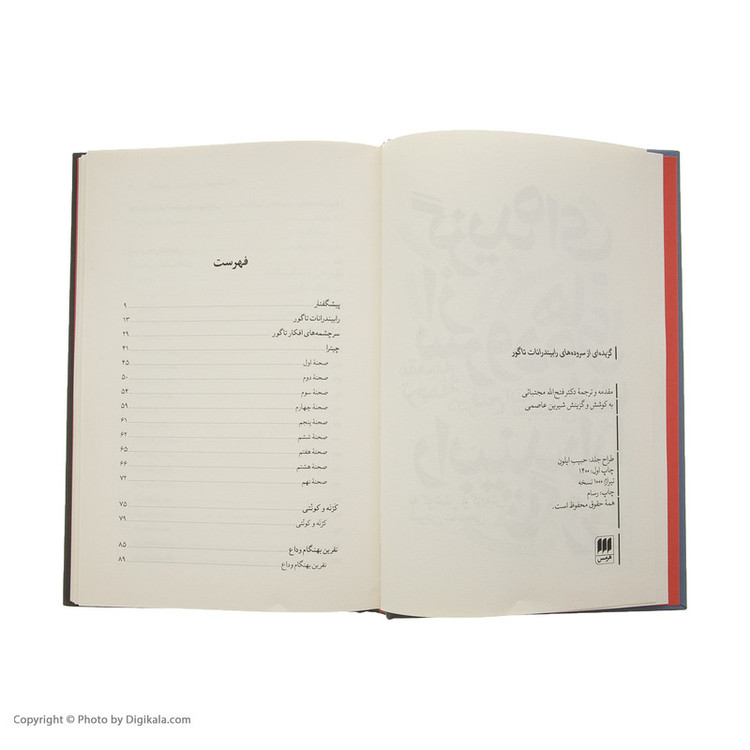 گزیده‌ای از سروده‌های رابیندرانات تاگور
مقدمه و ترجمهٔ دکتر فتح‌الله مجتبائی
به کوشش و گزینش شیرین عاصمی
طراح جلد: حبیب ایلون
چاپ اول: ۱۴۰۰
تیراژ: ۱۰۰۰ نسخه
چاپ: رسام
همهٔ حقوق محفوظ است.
هرمس
فهرست
پیشگفتار ۹
رابیندرانات تاگور ۱۳
سرچشمه‌های افکار تاگور ۲۹
چیترا ۴۱
صحنهٔ اول ۴۵
صحنهٔ دوم ۵۰
صحنهٔ سوم ۵۴
صحنهٔ چهارم ۵۹
صحنهٔ پنجم ۶۱
صحنهٔ ششم ۶۲
صحنهٔ هفتم ۶۵
صحنهٔ هشتم ۶۶
صحنهٔ نهم ۷۲
کَرْنَه و کونْتی ۷۵
کَرْنَه و کونْتی ۷۹
نفرین بهنگام وداع ۸۵
نفرین بهنگام وداع ۸۹
Copyright © Photo by Digikala.com